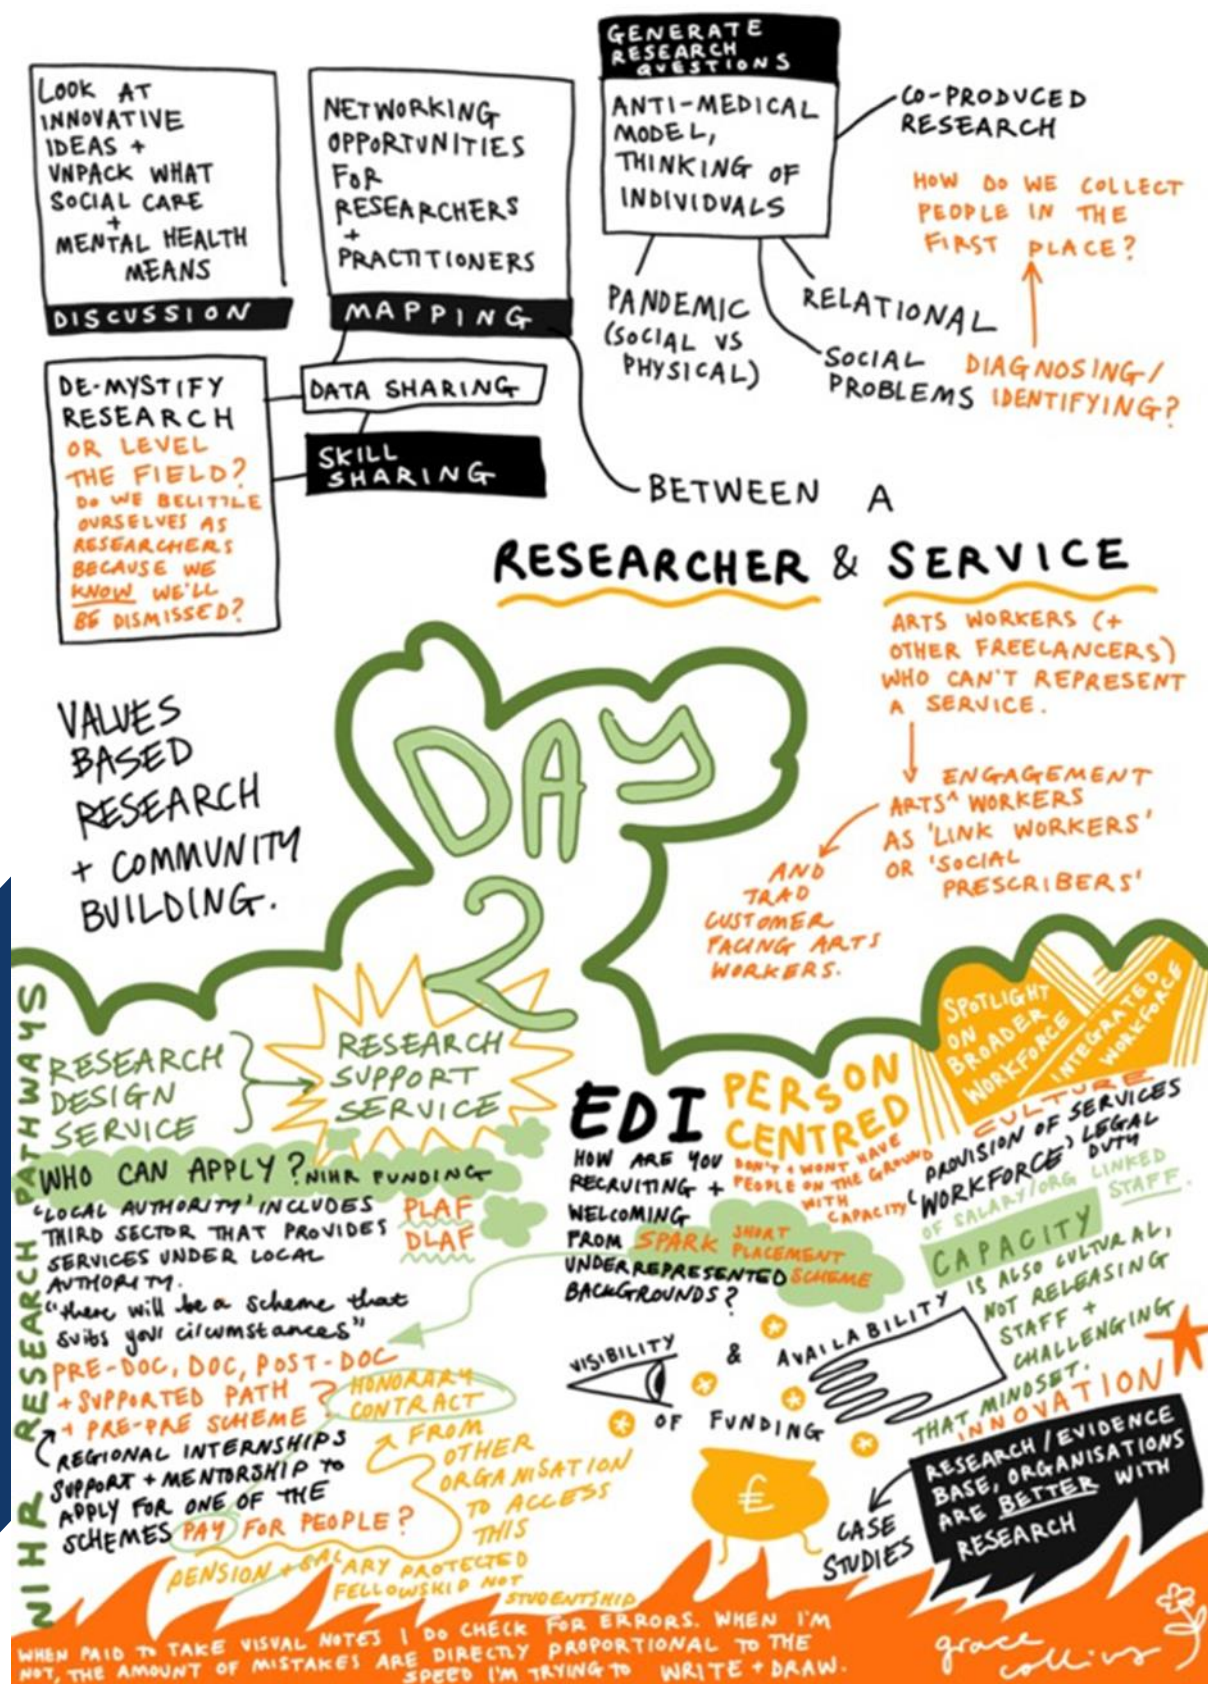 LOOK AT
INNOVATIVE
IDEAS +
UNPACK WHAT
SOCIAL CARE
+
MENTAL HEALTH
MEANS
DISCUSSION
NETWORKING
OPPORTUNITIES
FOR
RESEARCHERS
+
PRACTITIONERS
MAPPING
GENERATE
RESEARCH
QUESTIONS
ANTI-MEDICAL
MODEL,
THINKING OF
INDIVIDUALS
CO-PRODUCED
RESEARCH
HOW DO WE COLLECT
PEOPLE IN THE
FIRST PLACE?
PANDEMIC
(SOCIAL VS
PHYSICAL)
RELATIONAL
SOCIAL
PROBLEMS
DIAGNOSING/
IDENTIFYING?
DE-MYSTIFY
RESEARCH
OR LEVEL
THE FIELD?
DO WE BELITTLE
OURSELVES AS
RESEARCHERS
BECAUSE WE
KNOW WE'LL
BE DISMISSED?
DATA SHARING
SKILL
SHARING
BETWEEN A
RESEARCHER & SERVICE
ARTS WORKERS (+
OTHER FREELANCERS)
WHO CAN'T REPRESENT
A SERVICE.
ENGAGEMENT
ARTS^ WORKERS
AS 'LINK WORKERS'
OR 'SOCIAL
PRESCRIBERS'
AND
TRAD
CUSTOMER
FACING ARTS
WORKERS.
VALUES
BASED
RESEARCH
+ COMMUNITY
BUILDING.
DAY
2
NIHR RESEARCH PATHWAYS
RESEARCH
DESIGN
SERVICE
RESEARCH
SUPPORT
SERVICE
WHO CAN APPLY? NIHR FUNDING
'LOCAL AUTHORITY' INCLUDES
THIRD SECTOR THAT PROVIDES
SERVICES UNDER LOCAL
AUTHORITY.
PLAF
DLAF
"there will be a scheme that
suits your circumstances"
PRE-DOC, DOC, POST-DOC
+ SUPPORTED PATH
+ PRE-PRE SCHEME?
REGIONAL INTERNSHIPS
SUPPORT + MENTORSHIP TO
APPLY FOR ONE OF THE
SCHEMES PAY FOR PEOPLE?
HONORARY
CONTRACT
FROM
OTHER
ORGANISATION
TO ACCESS
THIS
PENSION + SALARY PROTECTED
FELLOWSHIP NOT
STUDENTSHIP
EDI
HOW ARE YOU
RECRUITING +
WELCOMING
FROM
UNDERREPRESENTED
BACKGROUNDS?
SPARK SHORT
PLACEMENT
SCHEME
PERSON
CENTRED
DON'T + WONT HAVE
PEOPLE ON THE GROUND
WITH
CAPACITY
SPOTLIGHT
ON
BROADER
WORKFORCE
INTEGRATED
WORKFORCE
CULTURE
PROVISION OF SERVICES
'WORKFORCE' LEGAL
DUTY
OF SALARY/ORG LINKED
STAFF.
CAPACITY
IS ALSO CULTURAL,
NOT RELEASING
STAFF +
CHALLENGING
THAT MINDSET.
INNOVATION
VISIBILITY
& AVAILABILITY
OF FUNDING
£
RESEARCH/EVIDENCE
BASE, ORGANISATIONS
ARE BETTER WITH
RESEARCH
CASE
STUDIES
WHEN PAID TO TAKE VISUAL NOTES I DO CHECK FOR ERRORS. WHEN I'M
NOT, THE AMOUNT OF MISTAKES ARE DIRECTLY PROPORTIONAL TO THE
SPEED I'M TRYING TO WRITE + DRAW.
grace
collins